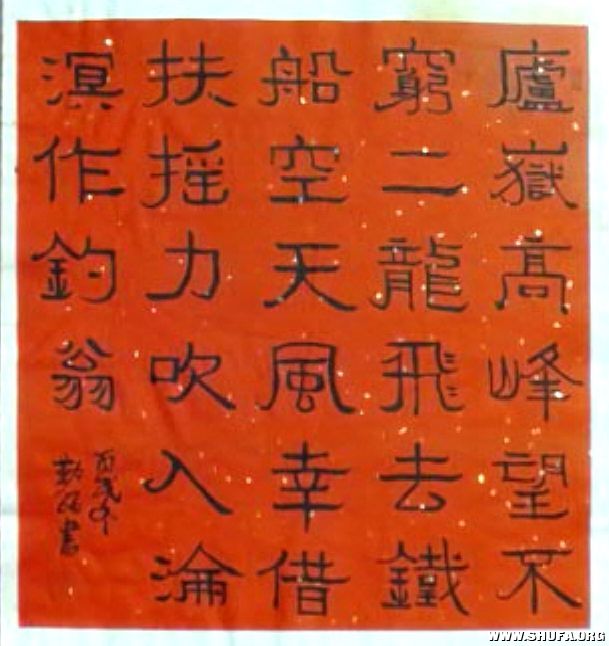 廬嶽高峰望不
窮二龍飛去鐵
船空天風幸借
扶摇力吹入淪
溟作釣翁
WWW.SHUFA.ORG